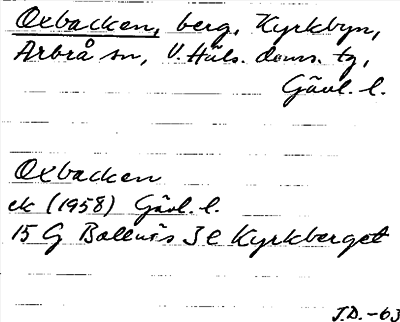 Oxbacken, berg, Kyrkbyn,
Arbrå sn, V. Häls. doms. tg,
Gävl. l.
Oxbacken
ek (1958) Gävl. l.
15 G Bollnäs 3 e Kyrkberget
J.D. -63